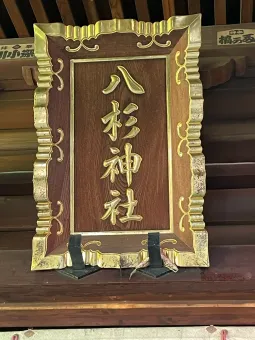 八杉神社